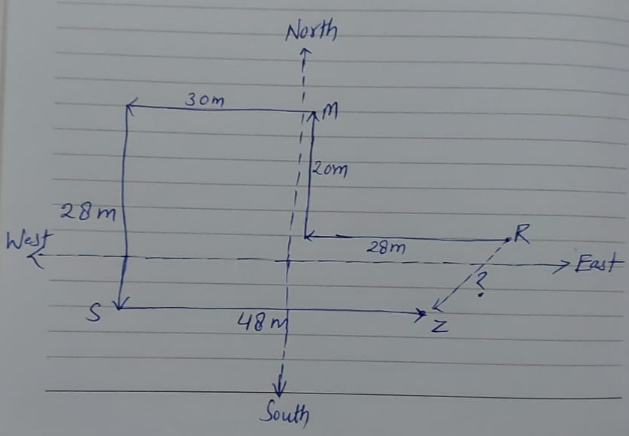 North
30m
M
20m
28m
West
28m
R
East
?
S
48m
Z
South